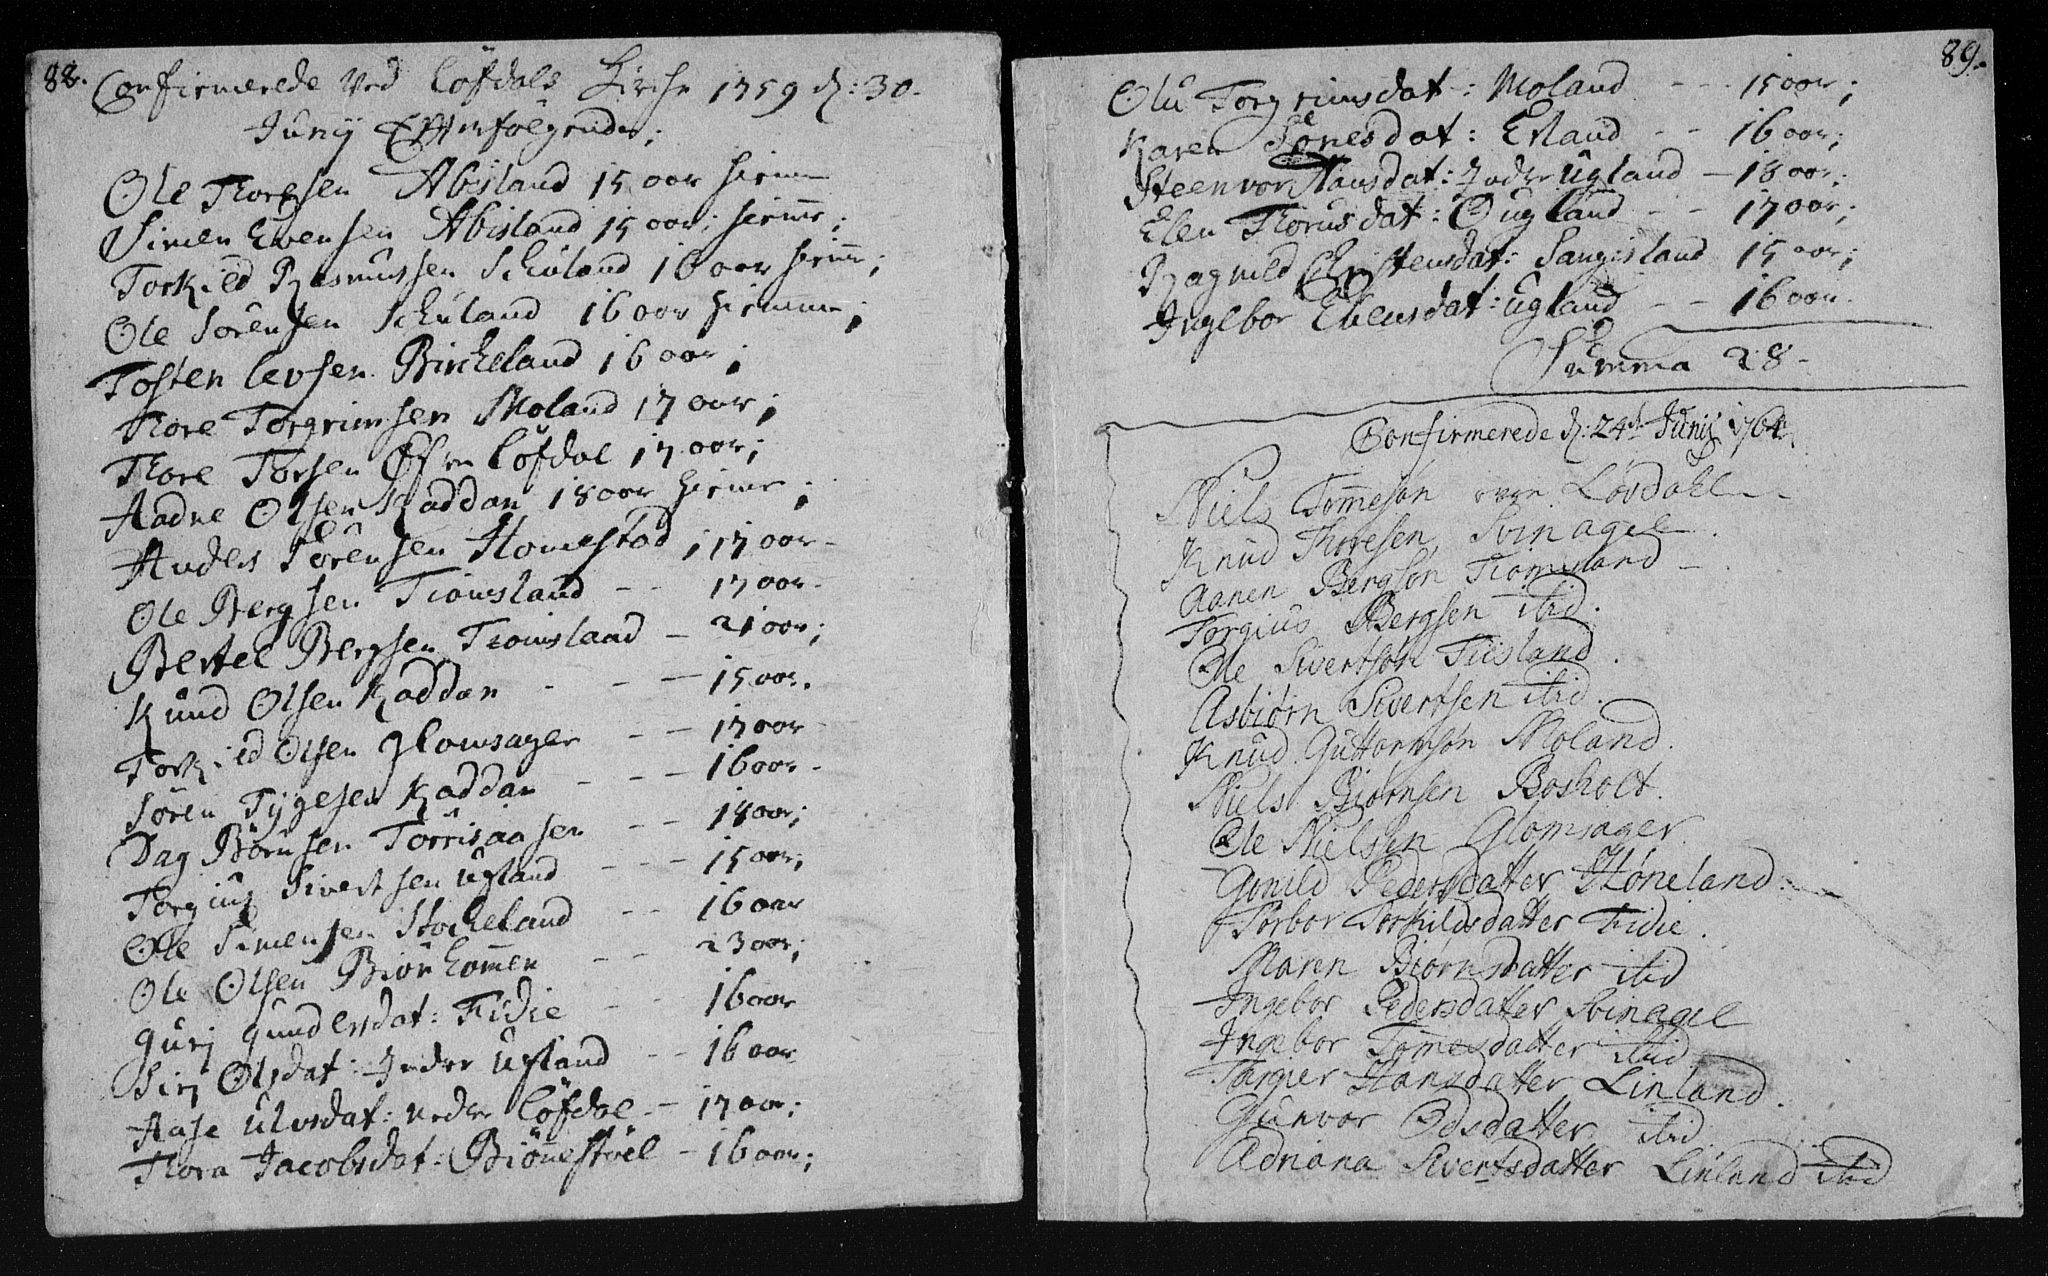 88.
Confirmerede Ved Löfdals Kirche 1759 d: 30.
Junij Efterfölgende;
Ole Thoresen Abisland 15 aar hiemme
Simen Evensen Abisland 15 aar; hiemme;
Torkild Rasmussen Schuland 16 aar hiemme;
Ole Sörensen Schuland 16 aar hiemme;
Tosten levsen Bircheland 16 aar;
Thore Torgrimsen Moland 17 aar;
Thore Torsen Öfre Löfdal 17 aar;
Aadne Olsen Kaddan 18 aar hieme;
Anders Sörensen Homestad; 17 aar
Ole Bergsen Tiomsland - - 17 aar
Bertel Bergsen Tiomsland - 21 aar;
Knud Olsen Kaddan - - - 15 aar.
Torkild Olsen Glomsager - - 17 aar
Sören Tÿgesen Kaddan - - - 16 aar.
Dag Börnsen Torrisaasen - - 18 aar;
Torgius Sivertsen Ugland - - - 15 aar;
Ole Simensen Stocheland - - 16 aar
Ole Olsen Biörkommen - - 23 aar;
Gurj Gundersdat: Fidie - - 16 aar
Sirj Olsdat: Indre Ugland - - 16 aar
Aase Ulvsdat: Nedre Löfdal - 17 aar;
Thora Jacobsdat: Biönnestöel - 16 aar;
89.
Olu Torgrimsdat: Moland - - 15 aar;
Karen Tönesdat: Erland - - 16 aar;
Steenvor Hansdat: Indre Ugland - 18 aar;
Elen Thorusdat: Ougland - - 17 aar;
Ragnild Christensdat: Sangisland 15 aar;
Ingebor Evensdat: Ugland - - 16 aar.
Summa 28.
Confirmerede d: 24de Junij 1764.
Niels Tommesön øvre Løvdahl
Knud Thoresen Svinagel
Aanen Bergsön Tiomsland
Torgius Bergsen ibid.
Ole Sivertsön Tiisland
Asbiørn Sivertsen ibid.
Knud Guttormsön Moland.
Niels Biørnsen Bosholt.
Ole Nielsen Glomsager.
Gonild Pedersdatter Høneland.
Torbor Torkildsdatter Fidie.
Maren Biørnsdatter ibid
Ingebor Pedersdatter Svinagel
Ingebor Tomesdatter ibid
Torgier Hansdatter Linland.
Gunvor Odsdatter ibid.
Adriana Sivertsdatter Linland ibid